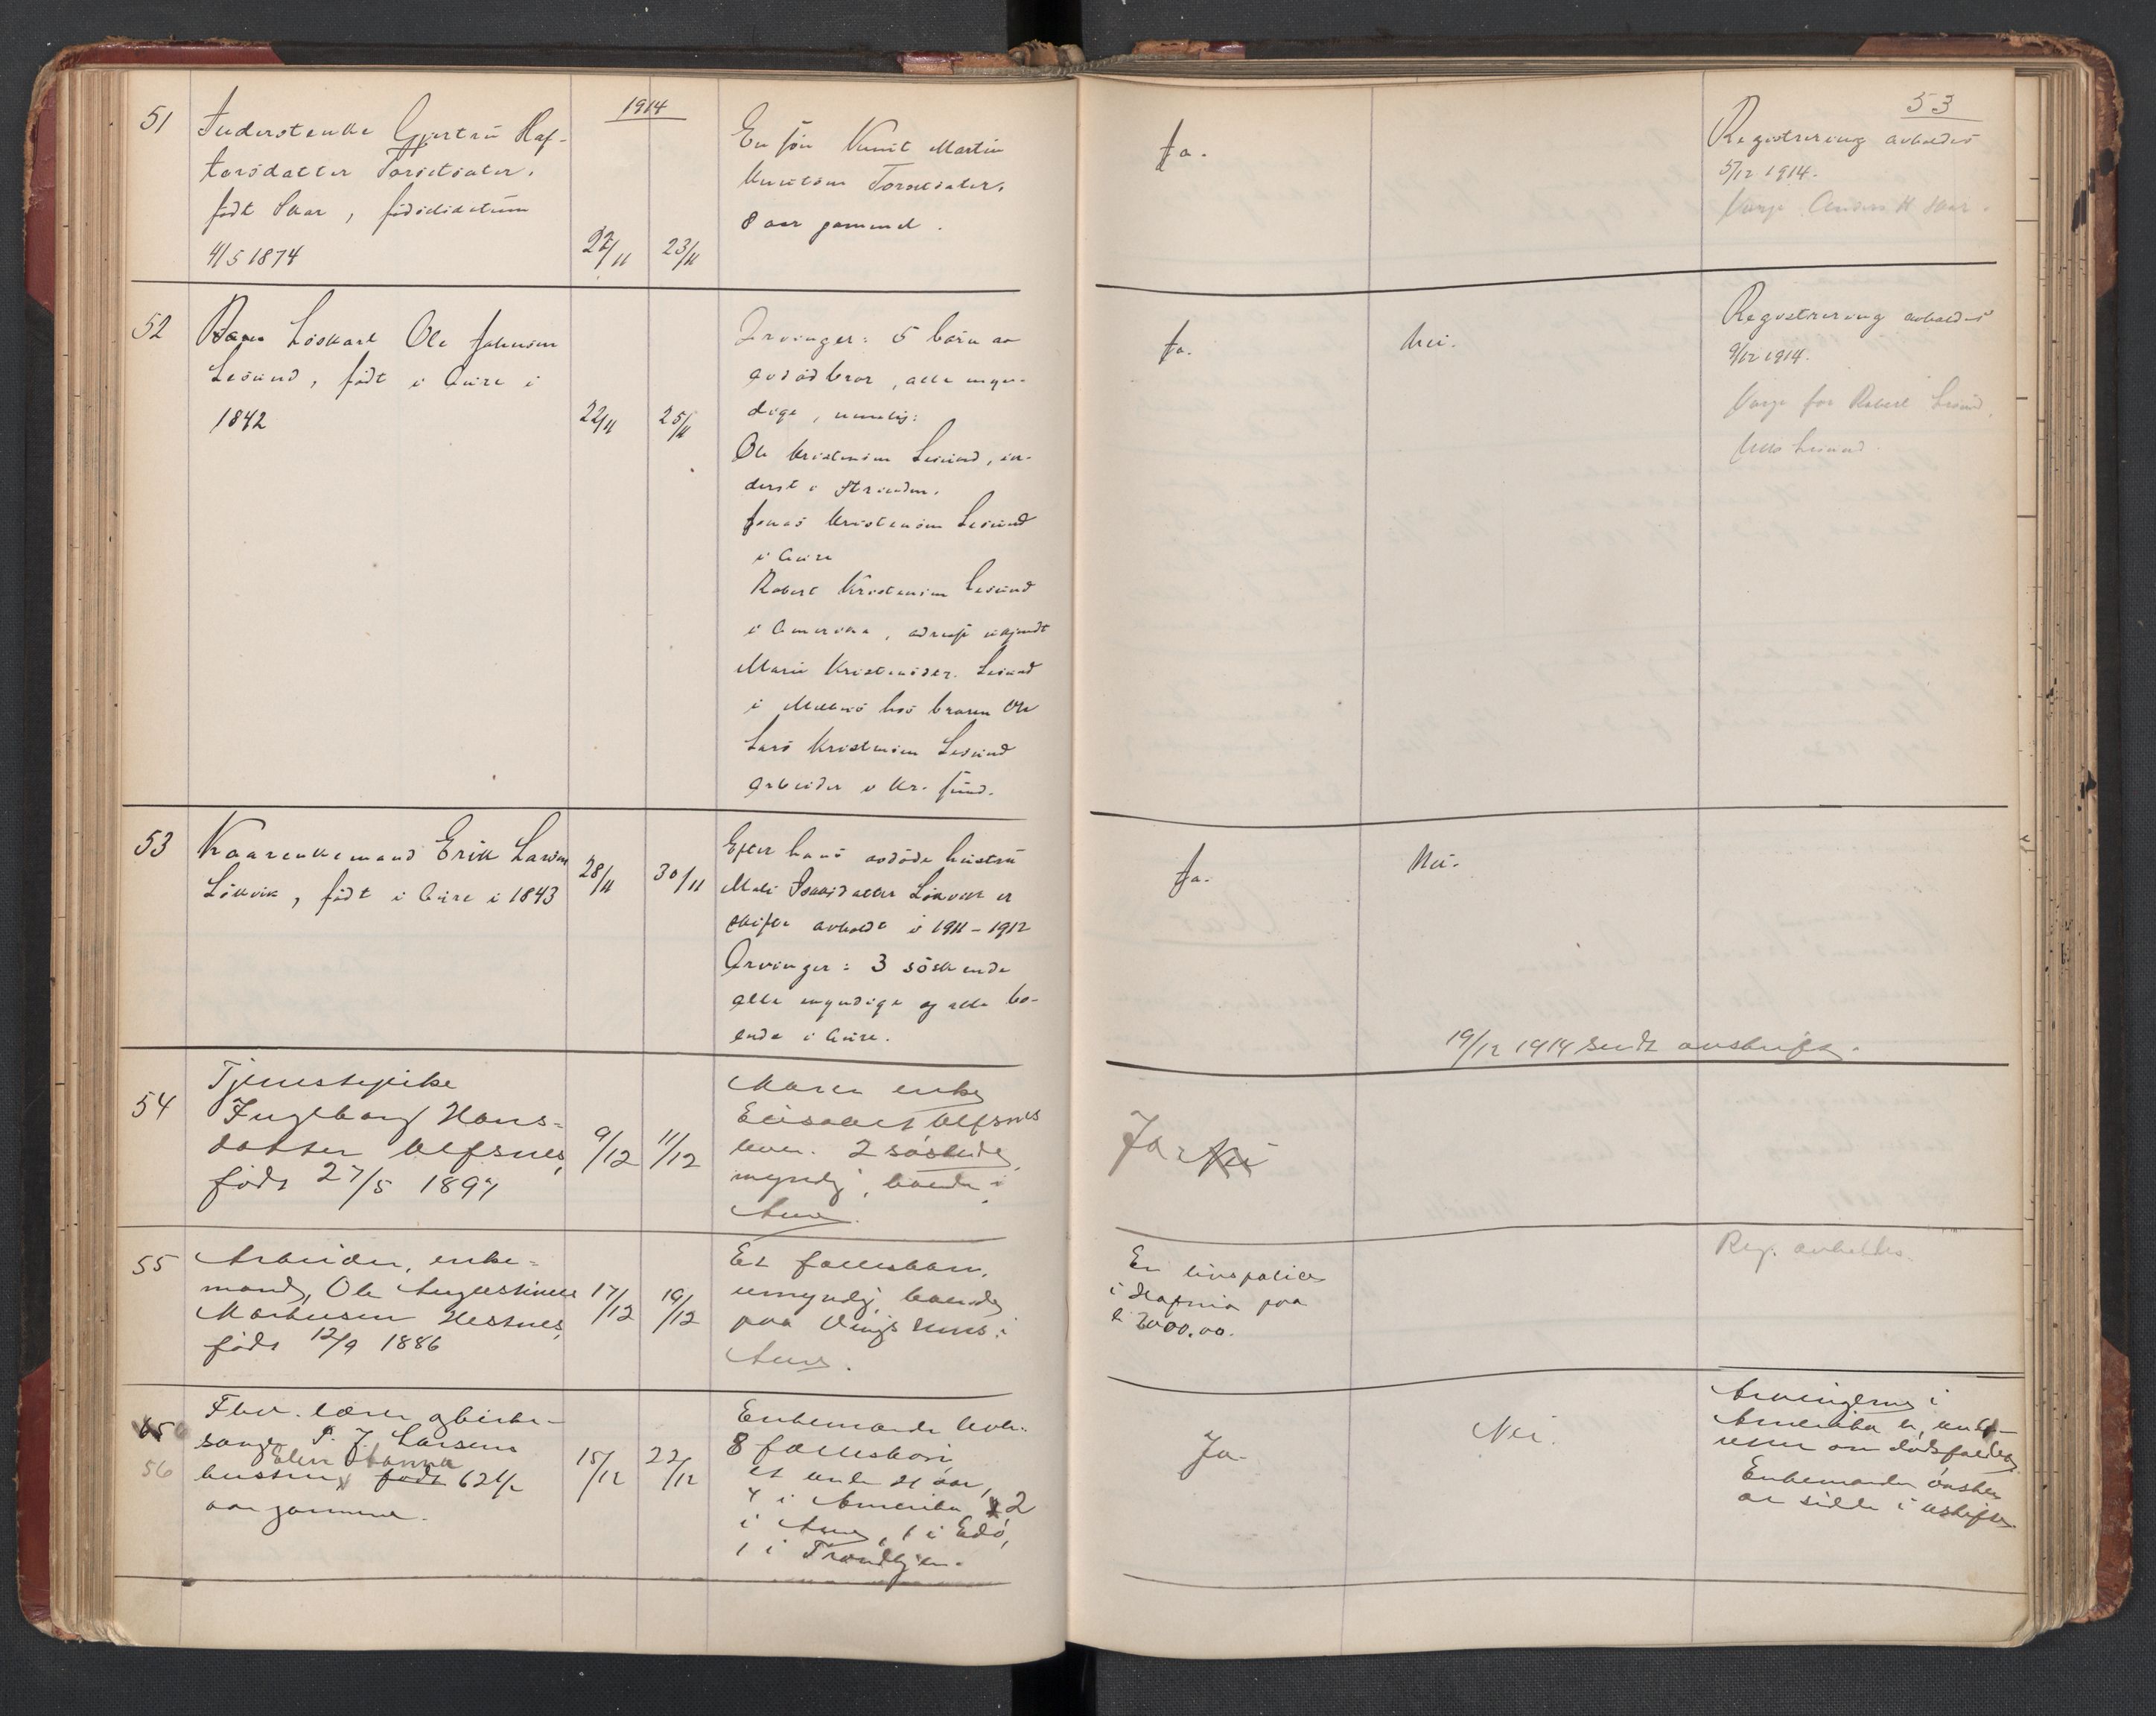 1914
51
Inderstenke Gjertru Haf-
torsdatter Torsetsæter,
født Skar, fødselsdatum
4/5 1874
22/11
23/11
En søn Knut Martin
Knutsøn Torsetsæter,
8 aar gammel.
52
Løskarl Ole Johnsen
Lesund, født i Aure i
1842
22/11
25/11
Arvinger: 5 børn av
avdød bror, alle myn-
dige, nemlig:
Ole Kristensen Lesund, in-
derst i Strinden.
Jonas Kristensen Lesund
i Aure
Robert Kristensen Lesund
i Amerika, adresse ukjendt
Marie Kristensdtr. Lesund
i hos broren Ole
Lars Kristensen Lesund
arbeider i Kr. sund.
53
Kaarenkemand Erik Larsen
Løkvik, født i Aure i 1843
28/11
30/11
Efter hans avdøde hustru
Mali Isaksdatter Løkvik er
skifte avholdt i 1911-1912
Arvinger: 3 søskende
alle myndige og alle bo-
ende i Aure.
54
Tjenestepike
Ingeborg Hans-
datter Ulfsnes,
født 27/5 1897
9/12
11/12
Moren enke
Elisabet Ulfsnes
lever. 2 søskende,
myndig, boende i
Aure.
55
Arbeider, enke-
mand, Ole Augustinus
Markussen Hestnes,
født 12/9 1886
17/12
19/12
Et fællesbarn,
umyndig, boende
paa Vingsnes i
Aure.
56
Fhv. lærer og kirke-
sanger P. J. Larsens
Elen Hanna
hustru født 62 1/2
aar gammel.
15/12
22/12
Enkemanden lever.
8 fællesbørn,
et under 21 aar,
4 i Amerika, 2
i Aure, 1 i Edø,
1 i Trondhjem.
53
Ja.
Registrering avholdes
5/12 1914.
Verge Anders H Skar.
Ja.
Nei.
Registrering avholdes
9/12 1914.
Verge for Robert Lesund,
Lesund.
Ja.
Nei.
19/12 1914 sendt avskrift.
Ja Nei
En livspolice
i Hafnia paa
kr 2000.00.
Reg. avholdes.
Ja.
Nei.
Arvingerne i
Amerika er under-
rettet om dødsfaldet.
Enkemanden ønsker
at sidde i uskifte